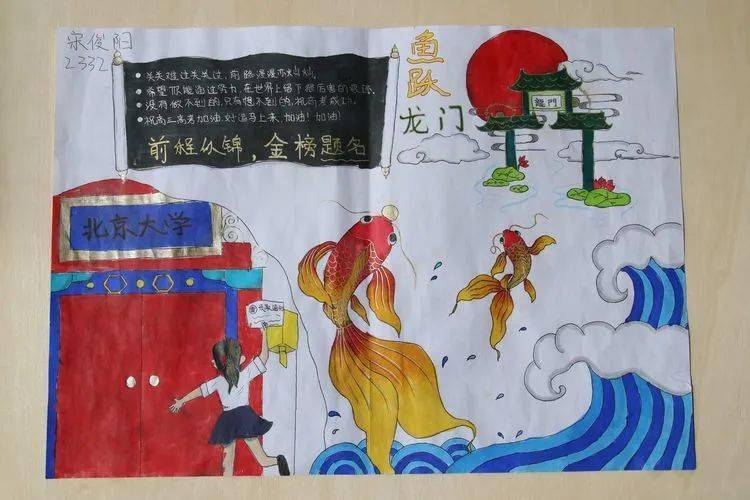 宋俊阳
2332
● 关关难过关关过，前路漫漫亦灿灿。
● 希望你能通过努力，在世界上留下很厉害的痕迹。
● 没有做不到的，只有想不到的，祝高考成功。
● 祝高三高考加油，好运马上来，加油！加油！
前程似锦，金榜题名
鱼
跃
龙门
龍門
北京大学